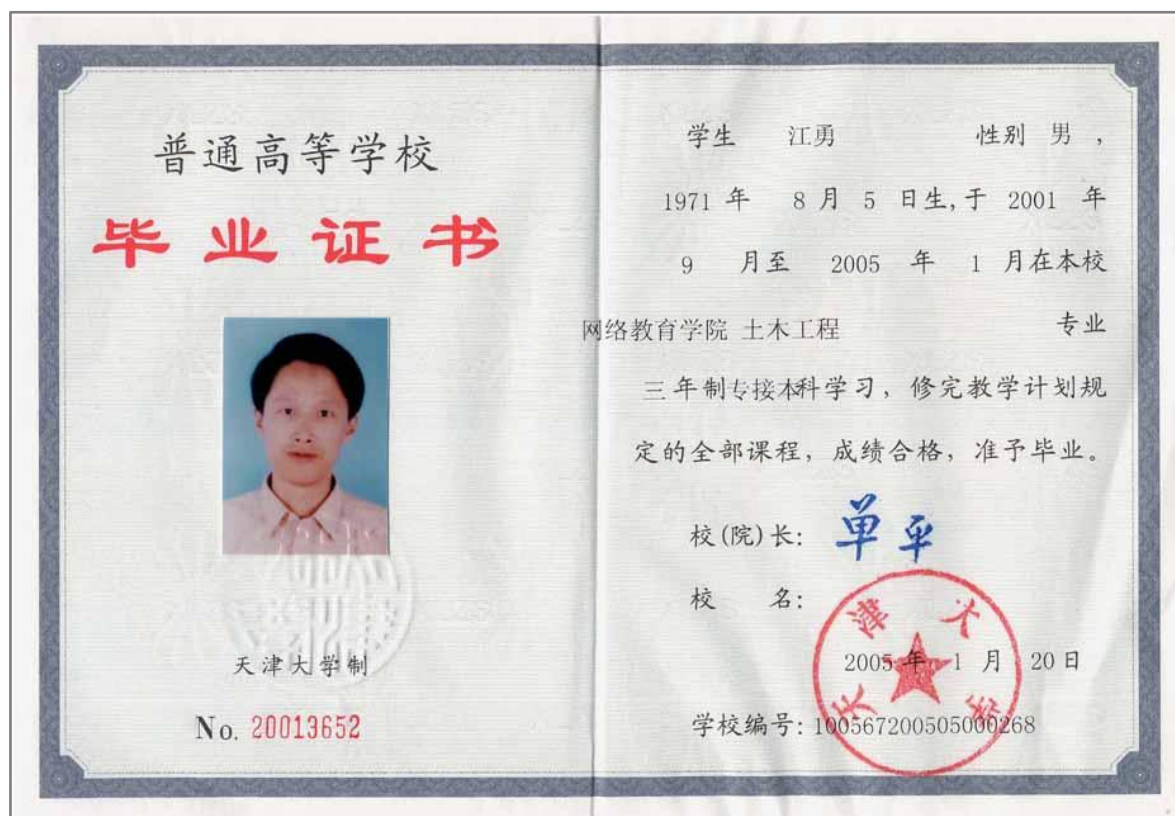 普通高等学校
毕业证书
天津大学制
No. 20013652
学生 江勇 性别 男 ，
1971 年 8 月 5 日生, 于 2001 年
9 月至 2005 年 1 月在本校
网络教育学院 土木工程 专业
三年制专接本科学习，修完教学计划规
定的全部课程，成绩合格，准予毕业。
校(院)长: 单平
校 名:
天津大学
2005 年 1 月 20 日
学校编号: 100567200505000268